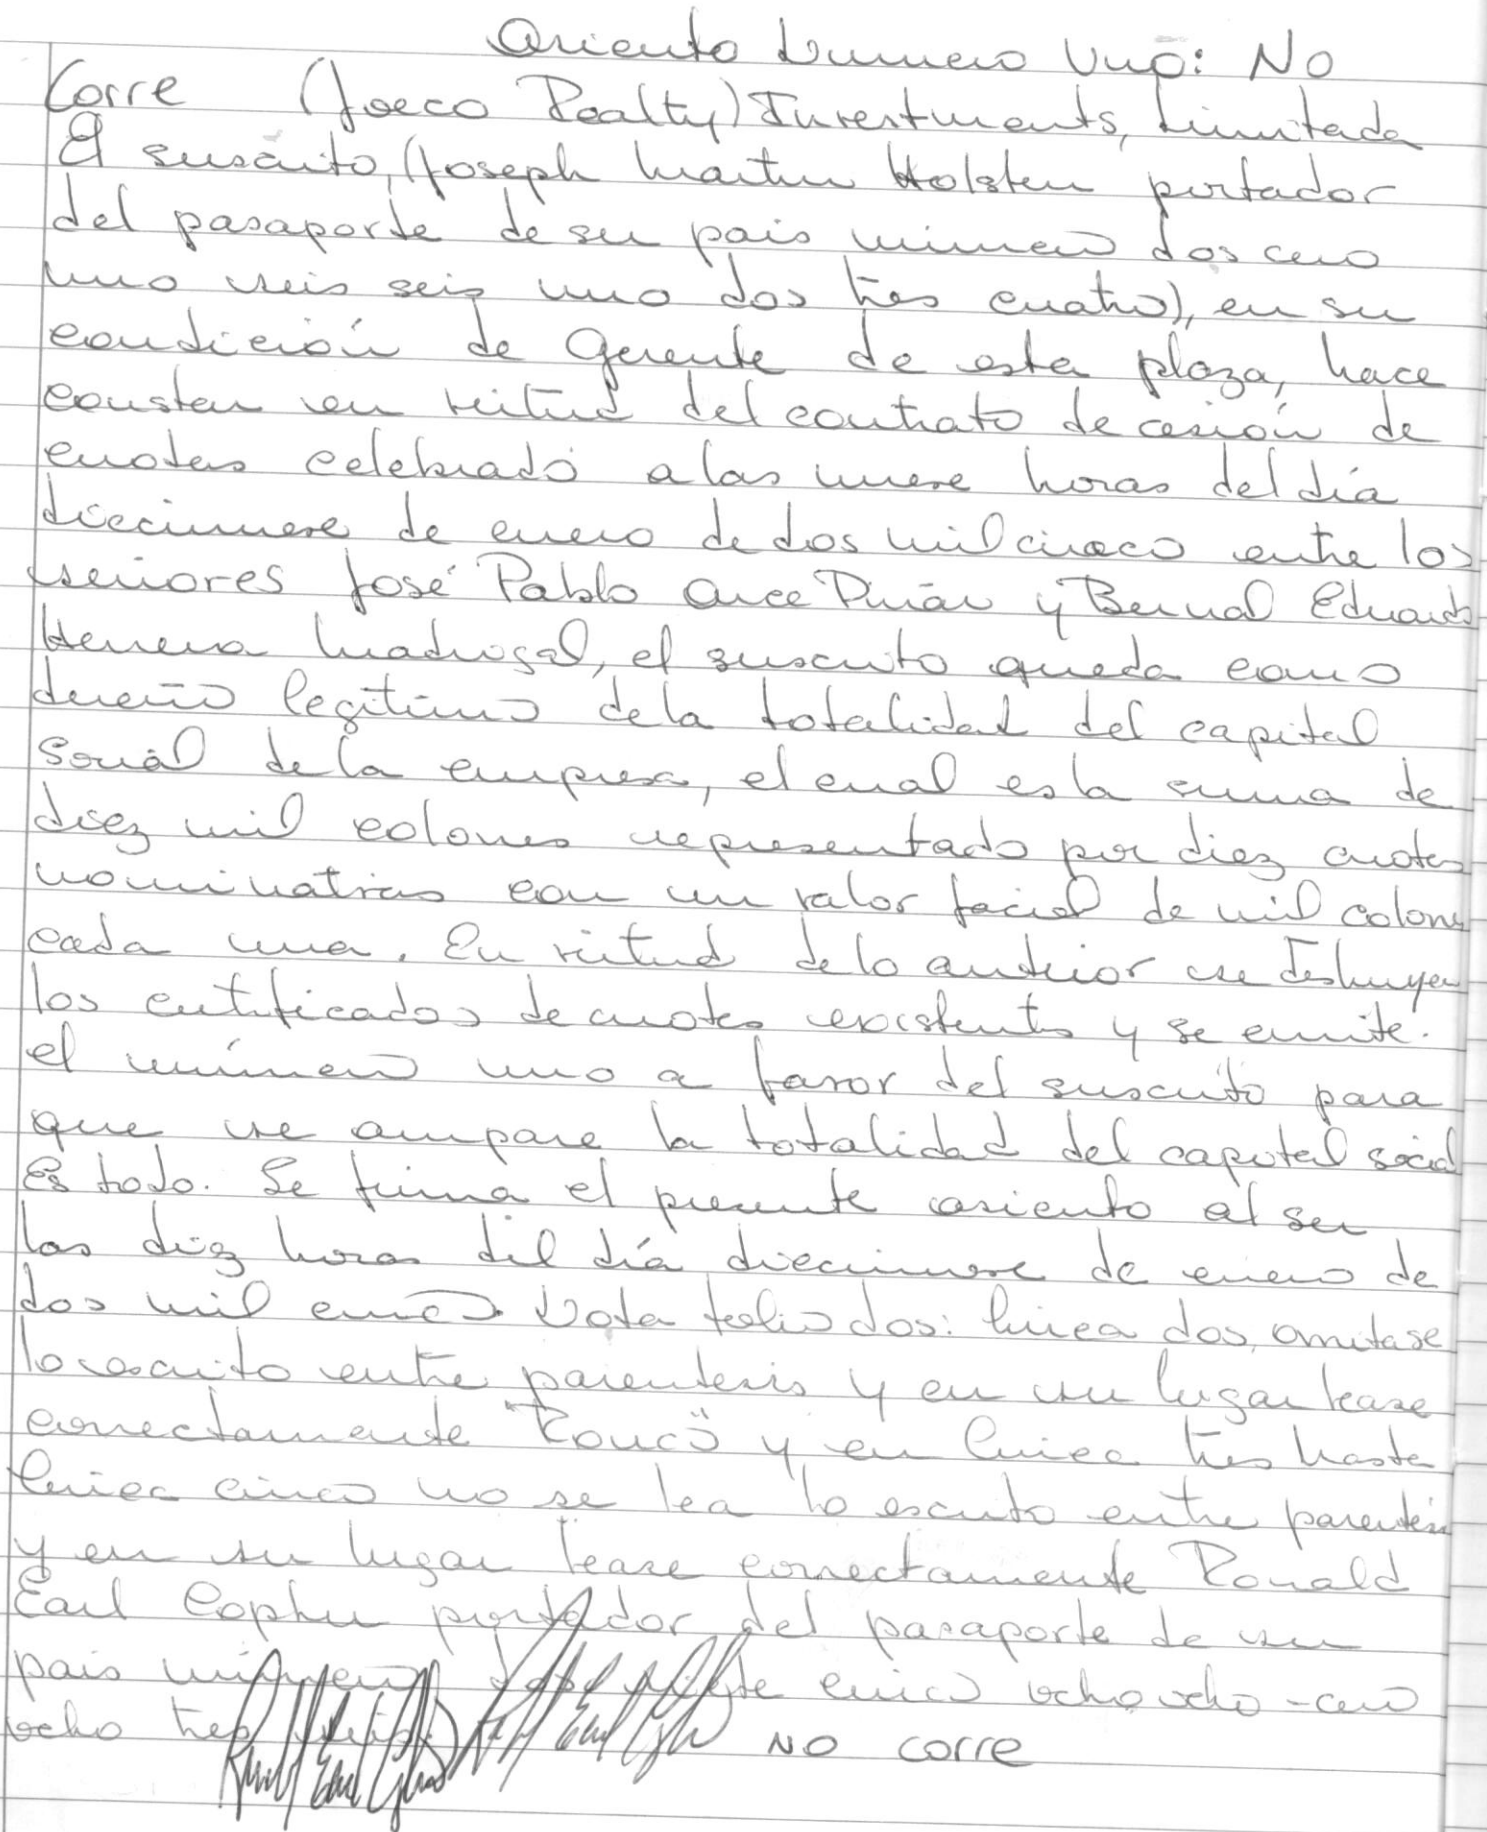 Asiento Numero Uno: No
Corre (Joeco Realty) Investments, Limitada
El suscrito, (Joseph Martin Holsten portador
del pasaporte de su pais número dos cero
uno seis seis uno dos tres cuatro), en su
condición de Gerente de esta plaza, hace
constar en virtud del contrato de cesión de
cuotas celebrado a las nueve horas del día
diecinueve de enero de dos mil cinco entre los
señores José Pablo Arce Piñar y Bernal Eduardo
Herrera Madrigal, el suscrito queda como
dueño legítimo de la totalidad del capital
social de la empresa, el cual es la suma de
diez mil colones representado por diez cuotas
nominativas con un valor facial de mil colones
cada una. En virtud de lo anterior se destruyen
los certificados de cuotas existentes y se emite
el número uno a favor del suscrito para
que se ampare la totalidad del capital social
Es todo. Se firma el presente asiento al ser
las diez horas del día diecinueve de enero de
dos mil cinco. Nota folio dos: linea dos, omitase
lo escrito entre parentesis y en su lugar lease
correctamente "Ronco" y en linea tres hasta
linea cinco no se lea lo escrito entre parentesis
y en su lugar lease correctamente Ronald
Earl portador del pasaporte de su
pais número siete cinco ocho ocho - cero
ocho tres NO CORRE